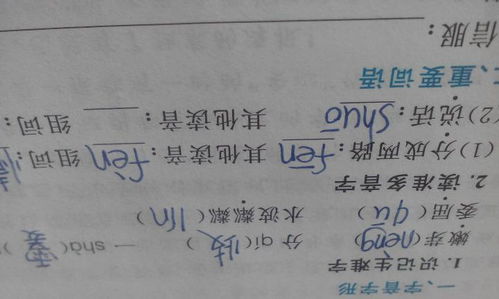 一、字音字形
1.识记生难字
嫩芽(neng) 分qí(歧) 一shà(霎)
委屈(qū) 水波粼粼(lín)
2.读准多音字
(1)分成两路:fēn 其他读音:fèn 组词:
(2)说话:shuō 其他读音: 组词:
二、重要词语
信服: